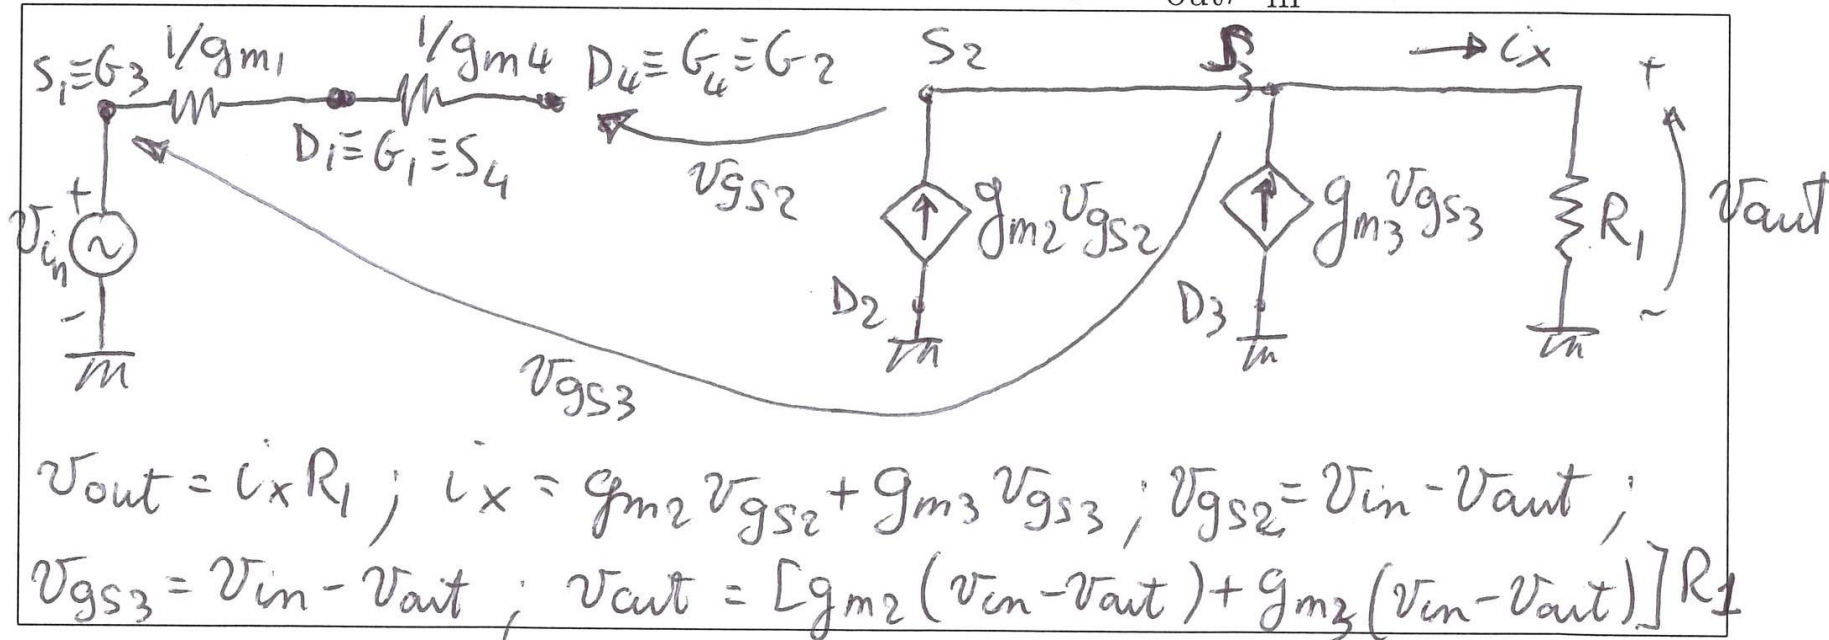 out/ in
S₁≡G₃ 1/gm₁ 1/gm4 D₄≡G₄≡G₂ S₂ S₃ → ix +
D₁≡G₁≡S₄ vgs2
+ vin − gm2vgs2 gm3vgs3 R₁ vout
D₂ D₃ −
vgs3
vout = ix R₁ ; ix = gm2 vgs2 + gm3 vgs3 ; vgs2 = vin - vout ;
vgs3 = vin - vout ; vout = [gm2 (vin-vout) + gm3 (vin-vout)] R1